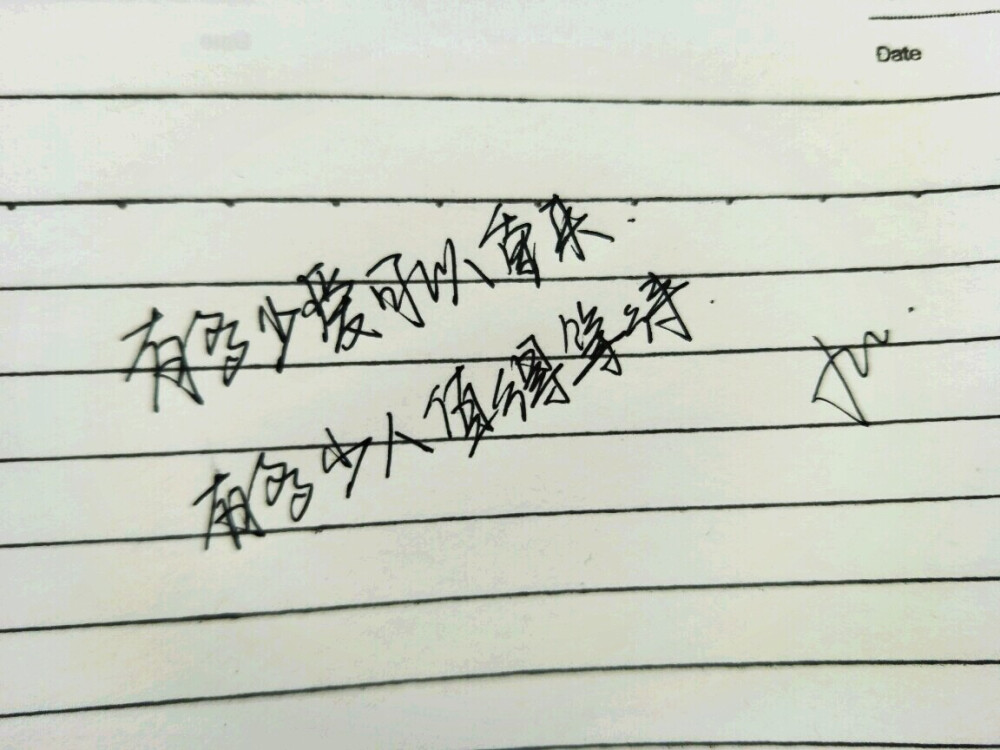 Date
有多少爱可以重来
有多少人值得等待